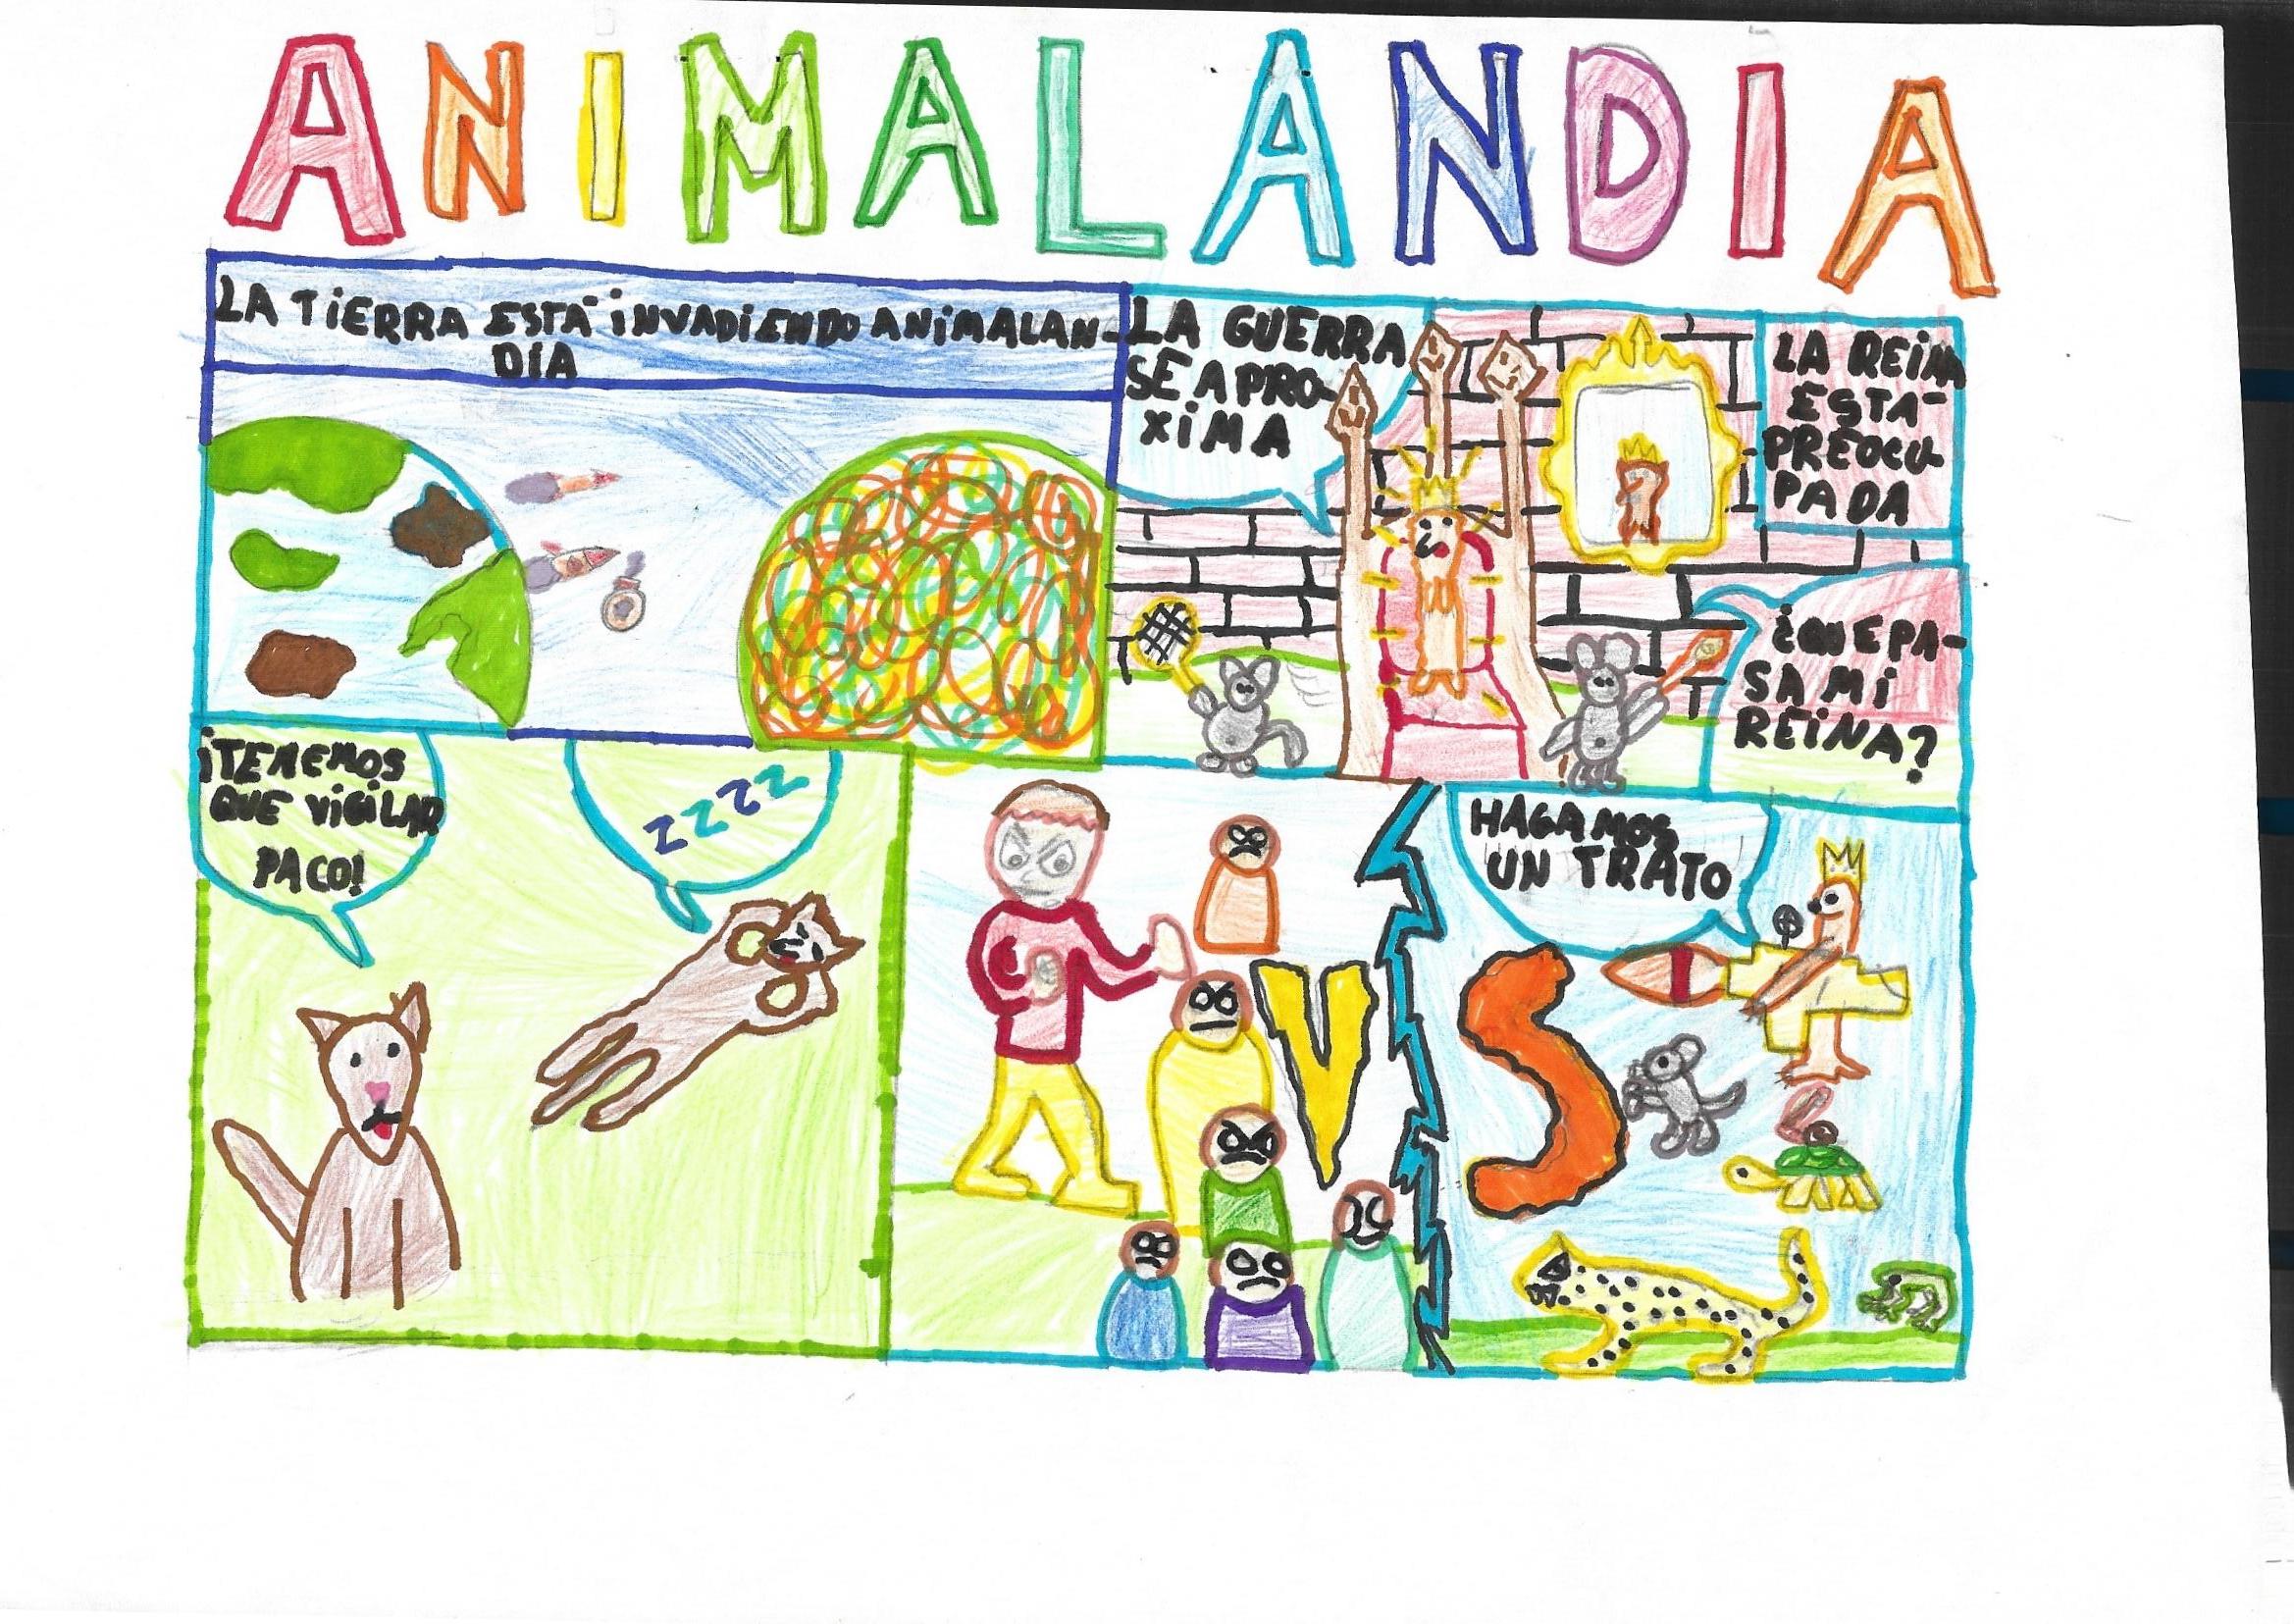 ANIMALANDIA
LA TIERRA ESTÁ INVADIENDO ANIMALAN-
DIA
LA GUERRA
SE APRO-
XIMA
LA REINA
ESTÁ
PREOCU-
PADA
¿QUE PA-
SA MI
REINA?
¡TENEMOS
QUE VIGILAR
PACO!
ZZZZ
VS
HAGAMOS
UN TRATO